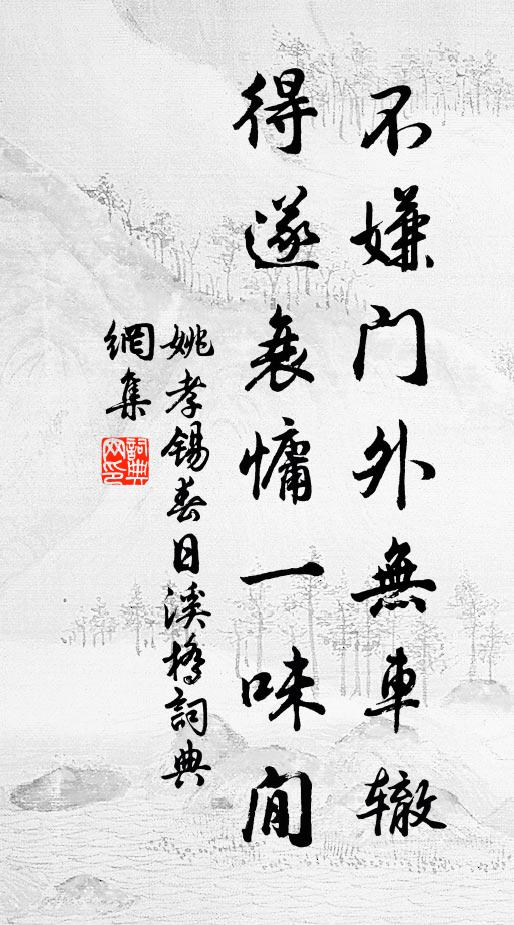 不嫌门外無車辙
得遂衰慵一味閒
姚孝锡春日溪橋詞典
網集
詞典
網印